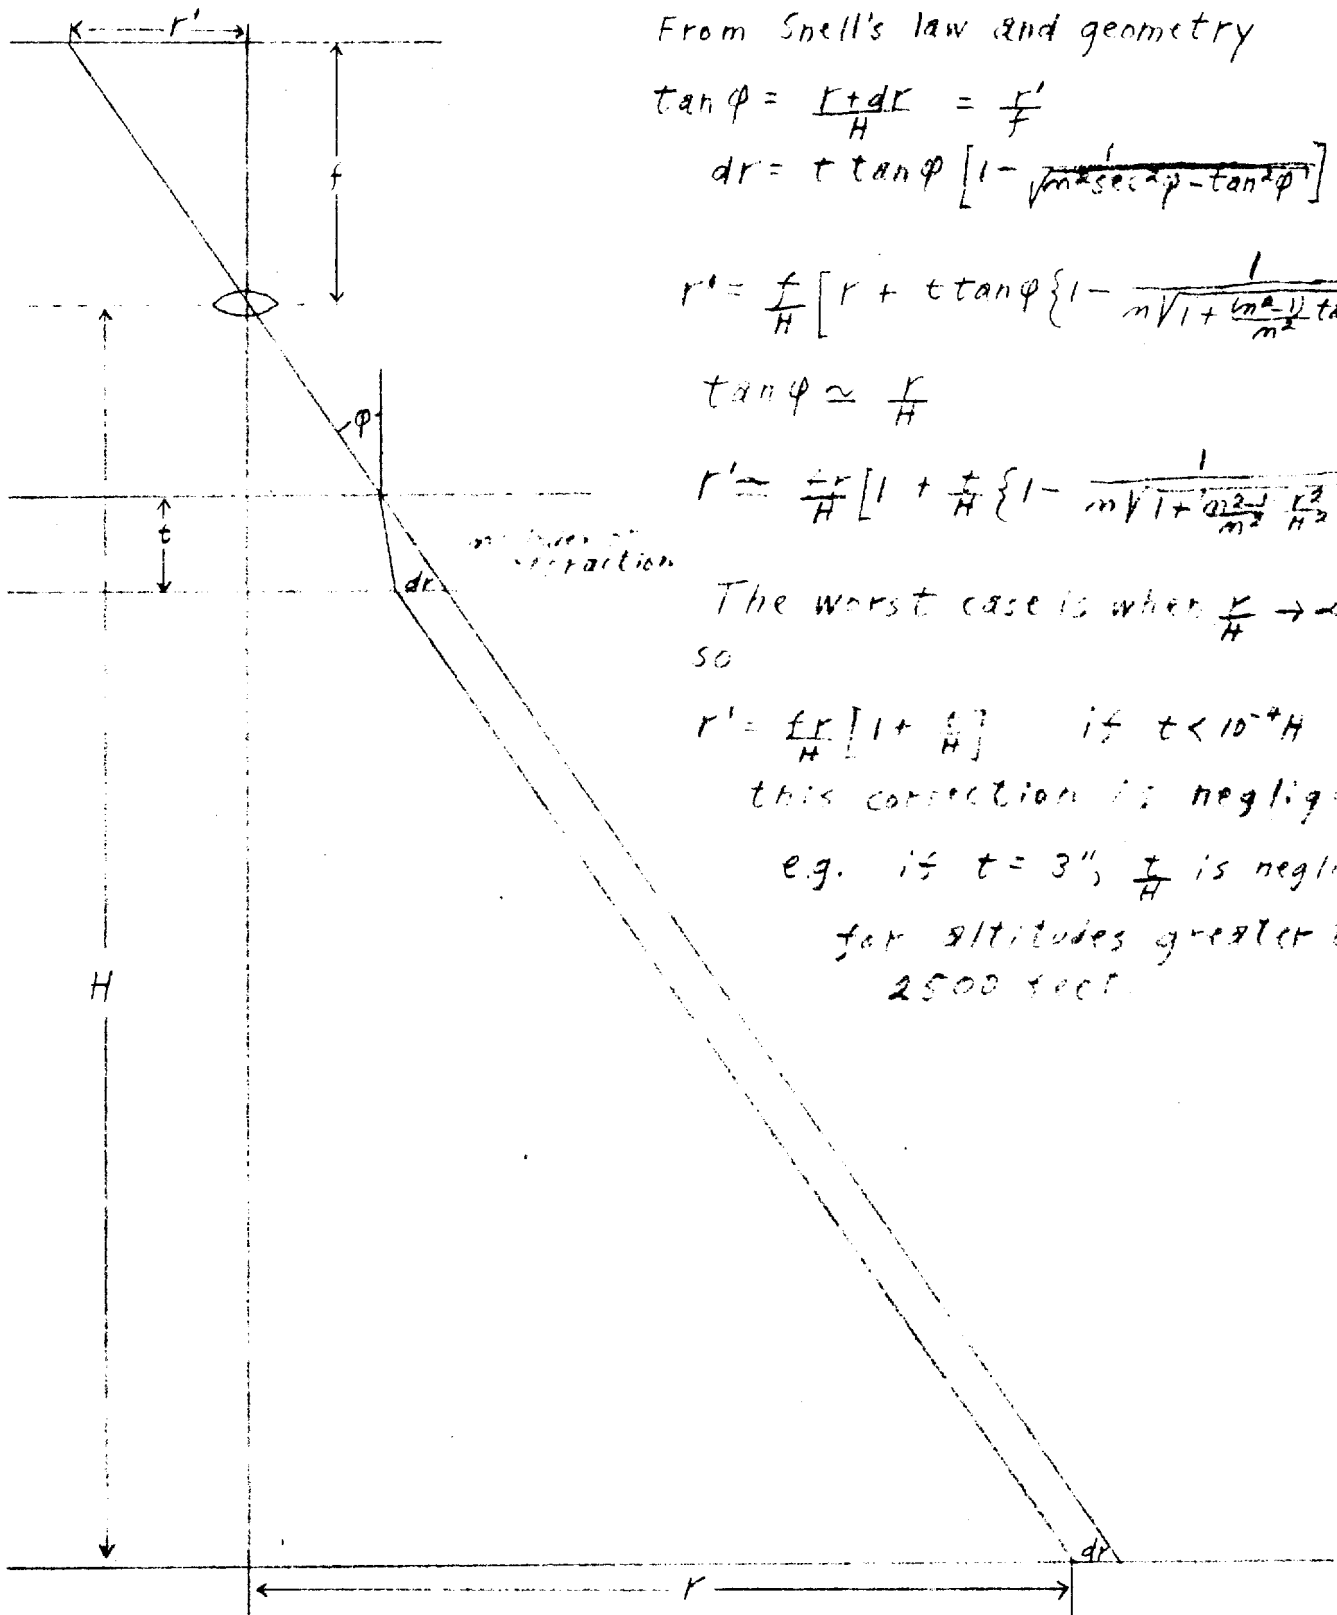 r'
From Snell's law and geometry
tan φ = (r+dr)/H = r'/f
f
dr = t tan φ [1 - 1/√(m²sec²φ - tan²φ)]
r' = f/H [r + t tan φ {1 - 1/(m√(1 + (m²-1)/m²
φ
tan φ ≃ r/H
r' ≃ fr/H [1 + t/H {1 - 1/(m√(1 + (m²-1)/m² r²/H²
t
dr
The worst case is when r/H →
so
r' = fr/H [1 + t/H] if t < 10⁻⁴H
this correction is
e.g. if t = 3", t/H is
for altitudes greater
H
2500 feet
dr
r